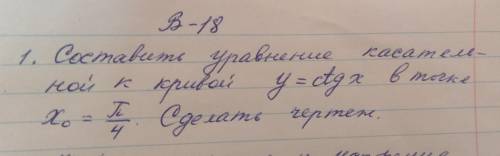 В-18
1. Составить уравнение касатель-
ной к кривой y = ctgx в точке
x₀ = π/4. Сделать чертеж.